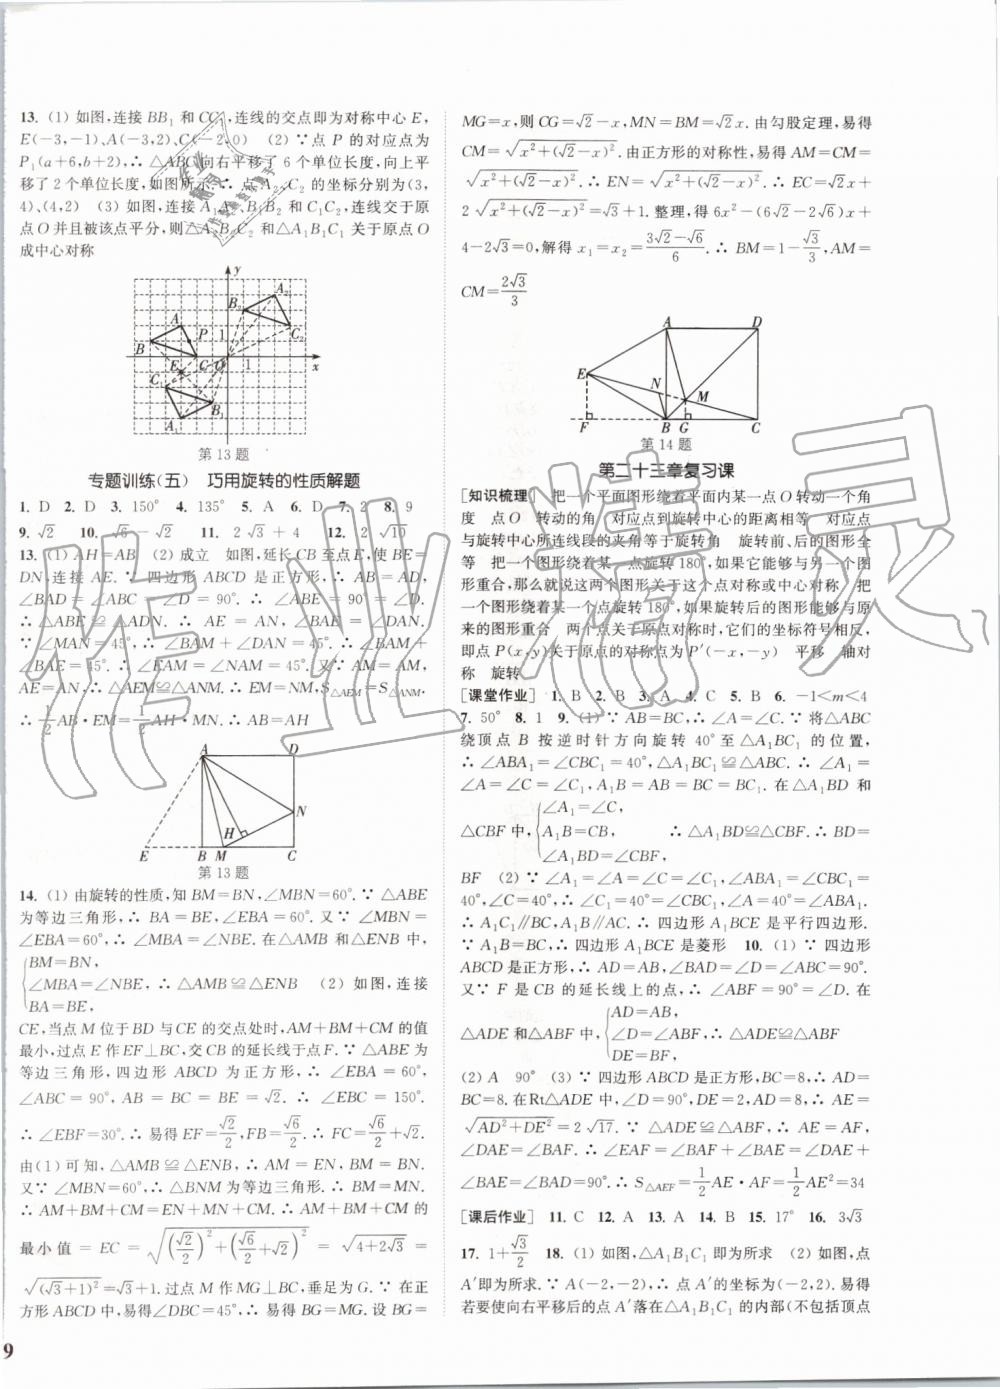 13. (1) 如图,连接 BB₁ 和 CC₁,连线的交点即为对称中心 E,
E(-3,-1),A(-3,2),C(-2,0) (2) ∵点 P 的对应点为
P₁(a+6,b+2),∴ △ABC 向右平移了 6 个单位长度,向上平
移了 2 个单位长度,如图所示.∴ 点 A₂、C₂ 的坐标分别为(3,
4)、(4,2) (3) 如图,连接 A₁A₂、B₁B₂ 和 C₁C₂,连线交于原
点 O 并且被该点平分,则△A₂B₂C₂ 和△A₁B₁C₁ 关于原点 O
成中心对称
y
A₂
B₂
C₂
A
P
1
B
E
C
O
1
x
C₁
B₁
A₁
第 13 题
专题训练(五) 巧用旋转的性质解题
1. D 2. D 3. 150° 4. 135° 5. A 6. D 7. 2 8. 9
9. √2 10. √6-√2 11. 2√3+4 12. 2√10
13. (1) AH=AB (2) 成立 如图,延长 CB 至点 E,使 BE=
DN,连接 AE.∵ 四边形 ABCD 是正方形,∴ AB=AD,
∠BAD = ∠ABC = ∠D = 90°.∴ ∠ABE = 90° = ∠D.
∴ △ABE ≌ △ADN. ∴ AE = AN, ∠BAE = ∠DAN.
∵ ∠MAN = 45°,∴ ∠BAM + ∠DAN = 45°.∴ ∠BAM +
∠BAE=45°.∴ ∠EAM=∠NAM=45°.又∵ AM=AM,
AE=AN,∴ △AEM≌△ANM.∴ EM=NM,S△AEM=S△ANM.
∴ 1/2 AB·EM=1/2 AH·MN.∴ AB=AH
A
D
N
H
E
B
M
C
第 13 题
14. (1) 由旋转的性质,知 BM=BN,∠MBN=60°.∵ △ABE
为等边三角形,∴ BA=BE,∠EBA=60°.又∵ ∠MBN=
∠EBA=60°,∴ ∠MBA=∠NBE.在△AMB 和△ENB 中,
{BM=BN,
∠MBA=∠NBE,∴ △AMB≌△ENB (2) 如图,连接
BA=BE,
CE,当点 M 位于 BD 与 CE 的交点处时,AM+BM+CM 的值
最小,过点 E 作 EF⊥BC,交 CB 的延长线于点 F.∵ △ABE 为
等边三角形,四边形 ABCD 为正方形,∴ ∠EBA = 60°,
∠ABC = 90°, AB = BC = BE = √2. ∴ ∠EBC = 150°.
∴ ∠EBF=30°.∴ 易得 EF=√2/2,FB=√6/2.∴ FC=√6/2+√2.
由(1)可知,△AMB≌△ENB,∴ AM=EN,BM=BN.
又∵ ∠MBN=60°,∴ △BNM 为等边三角形.∴ BM=MN.
∴ AM+BM+CM=EN+MN+CM.∴ AM+BM+CM 的
最小值 = EC = √((√2/2)²+(√6/2+√2)²) = √(4+2√3) =
√((√3+1)²)=√3+1.过点 M 作 MG⊥BC,垂足为 G.∵ 在正
方形 ABCD 中,易得∠DBC=45°,∴ 易得 BG=MG.设 BG=
9
MG=x,则 CG=√2-x,MN=BM=√2x.由勾股定理,易得
CM=√(x²+(√2-x)²).由正方形的对称性,易得 AM=CM=
√(x²+(√2-x)²).∴ EN=√(x²+(√2-x)²).∴ EC=√2x+
2√(x²+(√2-x)²)=√3+1.整理,得 6x²-(6√2-2√6)x+
4-2√3=0,解得 x₁=x₂=(3√2-√6)/6.∴ BM=1-√3/3,AM=
CM=2√3/3
A
D
E
N
M
F
B
G
C
第 14 题
第二十三章复习课
[知识梳理] 把一个平面图形绕着平面内某一点 O 转动一个角
度 点 O 转动的角 对应点到旋转中心的距离相等 对应点
与旋转中心所连线段的夹角等于旋转角 旋转前、后的图形全
等 把一个图形绕着某一点旋转 180°,如果它能够与另一个图
形重合,那么就说这两个图形关于这个点对称或中心对称 把
一个图形绕着某一点旋转 180°,如果旋转后的图形能够与原
来的图形重合 两个点关于原点对称时,它们的坐标符号相反,
即点 P(x,y)关于原点的对称点为 P′(-x,-y) 平移 轴对
称 旋转
[课堂作业] 1. B 2. B 3. A 4. C 5. B 6. -1<m<4
7. 50° 8. 1 9. (1) ∵ AB=BC,∴ ∠A=∠C.∵ 将△ABC
绕顶点 B 按逆时针方向旋转 40°至△A₁BC₁ 的位置,
∴ ∠ABA₁=∠CBC₁=40°,△A₁BC₁≌△ABC.∴ ∠A₁=
∠A=∠C=∠C₁,A₁B=AB=BC=BC₁.在△A₁BD 和
{∠A₁=∠C,
△CBF 中, A₁B=CB, ∴ △A₁BD≌△CBF.∴ BD=
∠A₁BD=∠CBF,
BF (2) ∵ ∠A₁=∠A=∠C=∠C₁,∠ABA₁=∠CBC₁=
40°,∠C=40°,∴ ∠C₁=∠C=∠CBC₁,∠A=40°=∠ABA₁.
∴ A₁C₁∥BC,A₁B∥AC.∴ 四边形 A₁BCE 是平行四边形.
∵ A₁B=BC,∴ 四边形 A₁BCE 是菱形 10. (1) ∵ 四边形
ABCD 是正方形,∴ AD=AB,∠BAD=∠D=∠ABC=90°.
又∵ F 是 CB 的延长线上的点,∴ ∠ABF=90°=∠D.在
{AD=AB,
△ADE 和△ABF 中, ∠D=∠ABF,∴ △ADE≌△ABF
DE=BF,
(2) A 90° (3) ∵ 四边形 ABCD 是正方形,BC=8,∴ AD=
BC=8.在 Rt△ADE 中,∠D=90°,DE=2,AD=8,∴ AE=
√(AD²+DE²)=2√17.∵ △ADE≌△ABF,∴ AE=AF,
∠DAE=∠BAF.∴ ∠EAF=∠BAF+∠BAE=∠DAE+
∠BAE=∠BAD=90°.∴ S△AEF=1/2 AE·AF=1/2 AE²=34
[课后作业] 11. C 12. A 13. A 14. B 15. 17° 16. 3√3
17. 1+√3/2 18. (1) 如图,△A₁B₁C₁ 即为所求 (2) 如图,点
A′即为所求.∵ A(-2,-2),∴ 点 A′的坐标为(-2,2).易得
若要使向右平移后的点 A′落在△A₁B₁C₁ 的内部(不包括顶点
作业精灵